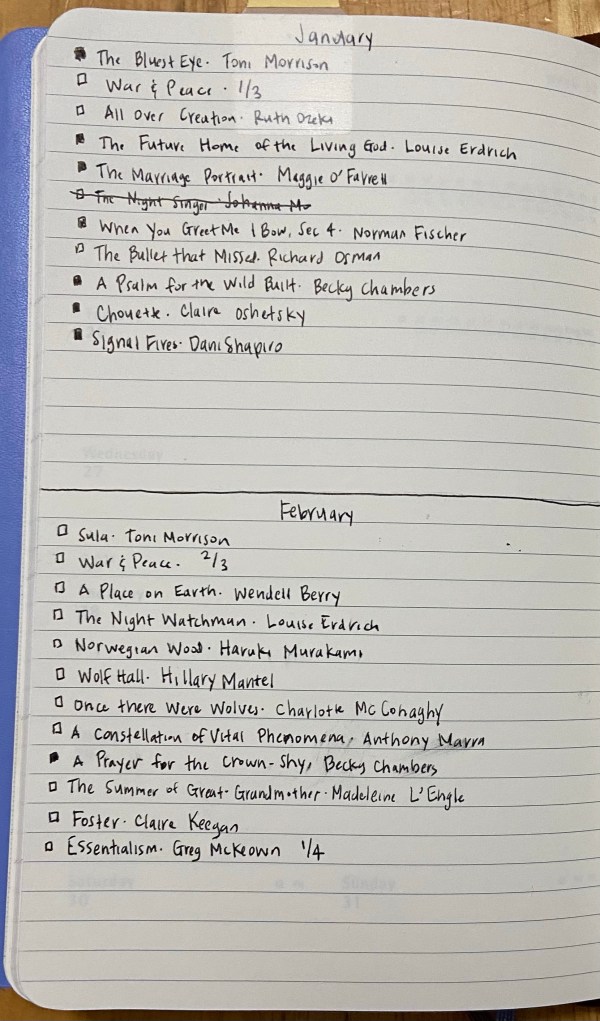 January
The Bluest Eye. Toni Morrison
War & Peace. 1/3
All Over Creation. Ruth Ozeki
The Future Home of the Living God. Louise Erdrich
The Marriage Portrait. Maggie O'Farrell
The Night Singer Johanna Mo
When You Greet Me I Bow, Sec 4. Norman Fischer
The Bullet that Missed. Richard Osman
A Psalm for the Wild Built. Becky Chambers
Chouette. Claire Oshetsky
Signal Fires. Dani Shapiro
Wednesday
27
February
Sula. Toni Morrison
War & Peace. 2/3
A Place on Earth. Wendell Berry
The Night Watchman. Louise Erdrich
Norwegian Wood. Haruki Murakami
Wolf Hall. Hillary Mantel
Once there Were Wolves. Charlotte McConaghy
A Constellation of Vital Phenomena, Anthony Marra
A Prayer for the Crown-Shy, Becky Chambers
The Summer of Great-Grandmother. Madeleine L'Engle
Foster. Claire Keegan
Essentialism. Greg McKeown 1/4
Saturday Sunday
30 31